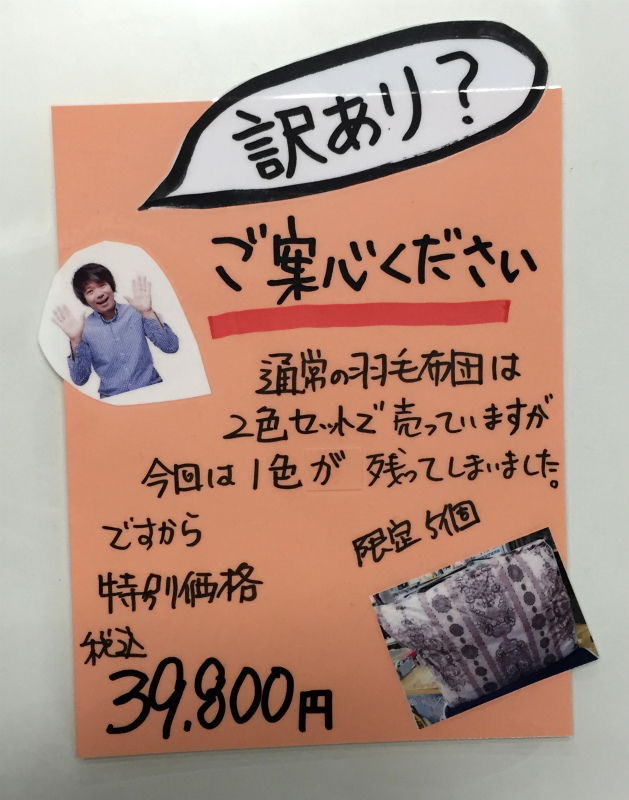 訳あり?
ご案心ください
通常の羽毛布団は
2色セットで売っていますが
今回は1色が残ってしまいました。
ですから
限定5個
特別価格
税込
39.800円